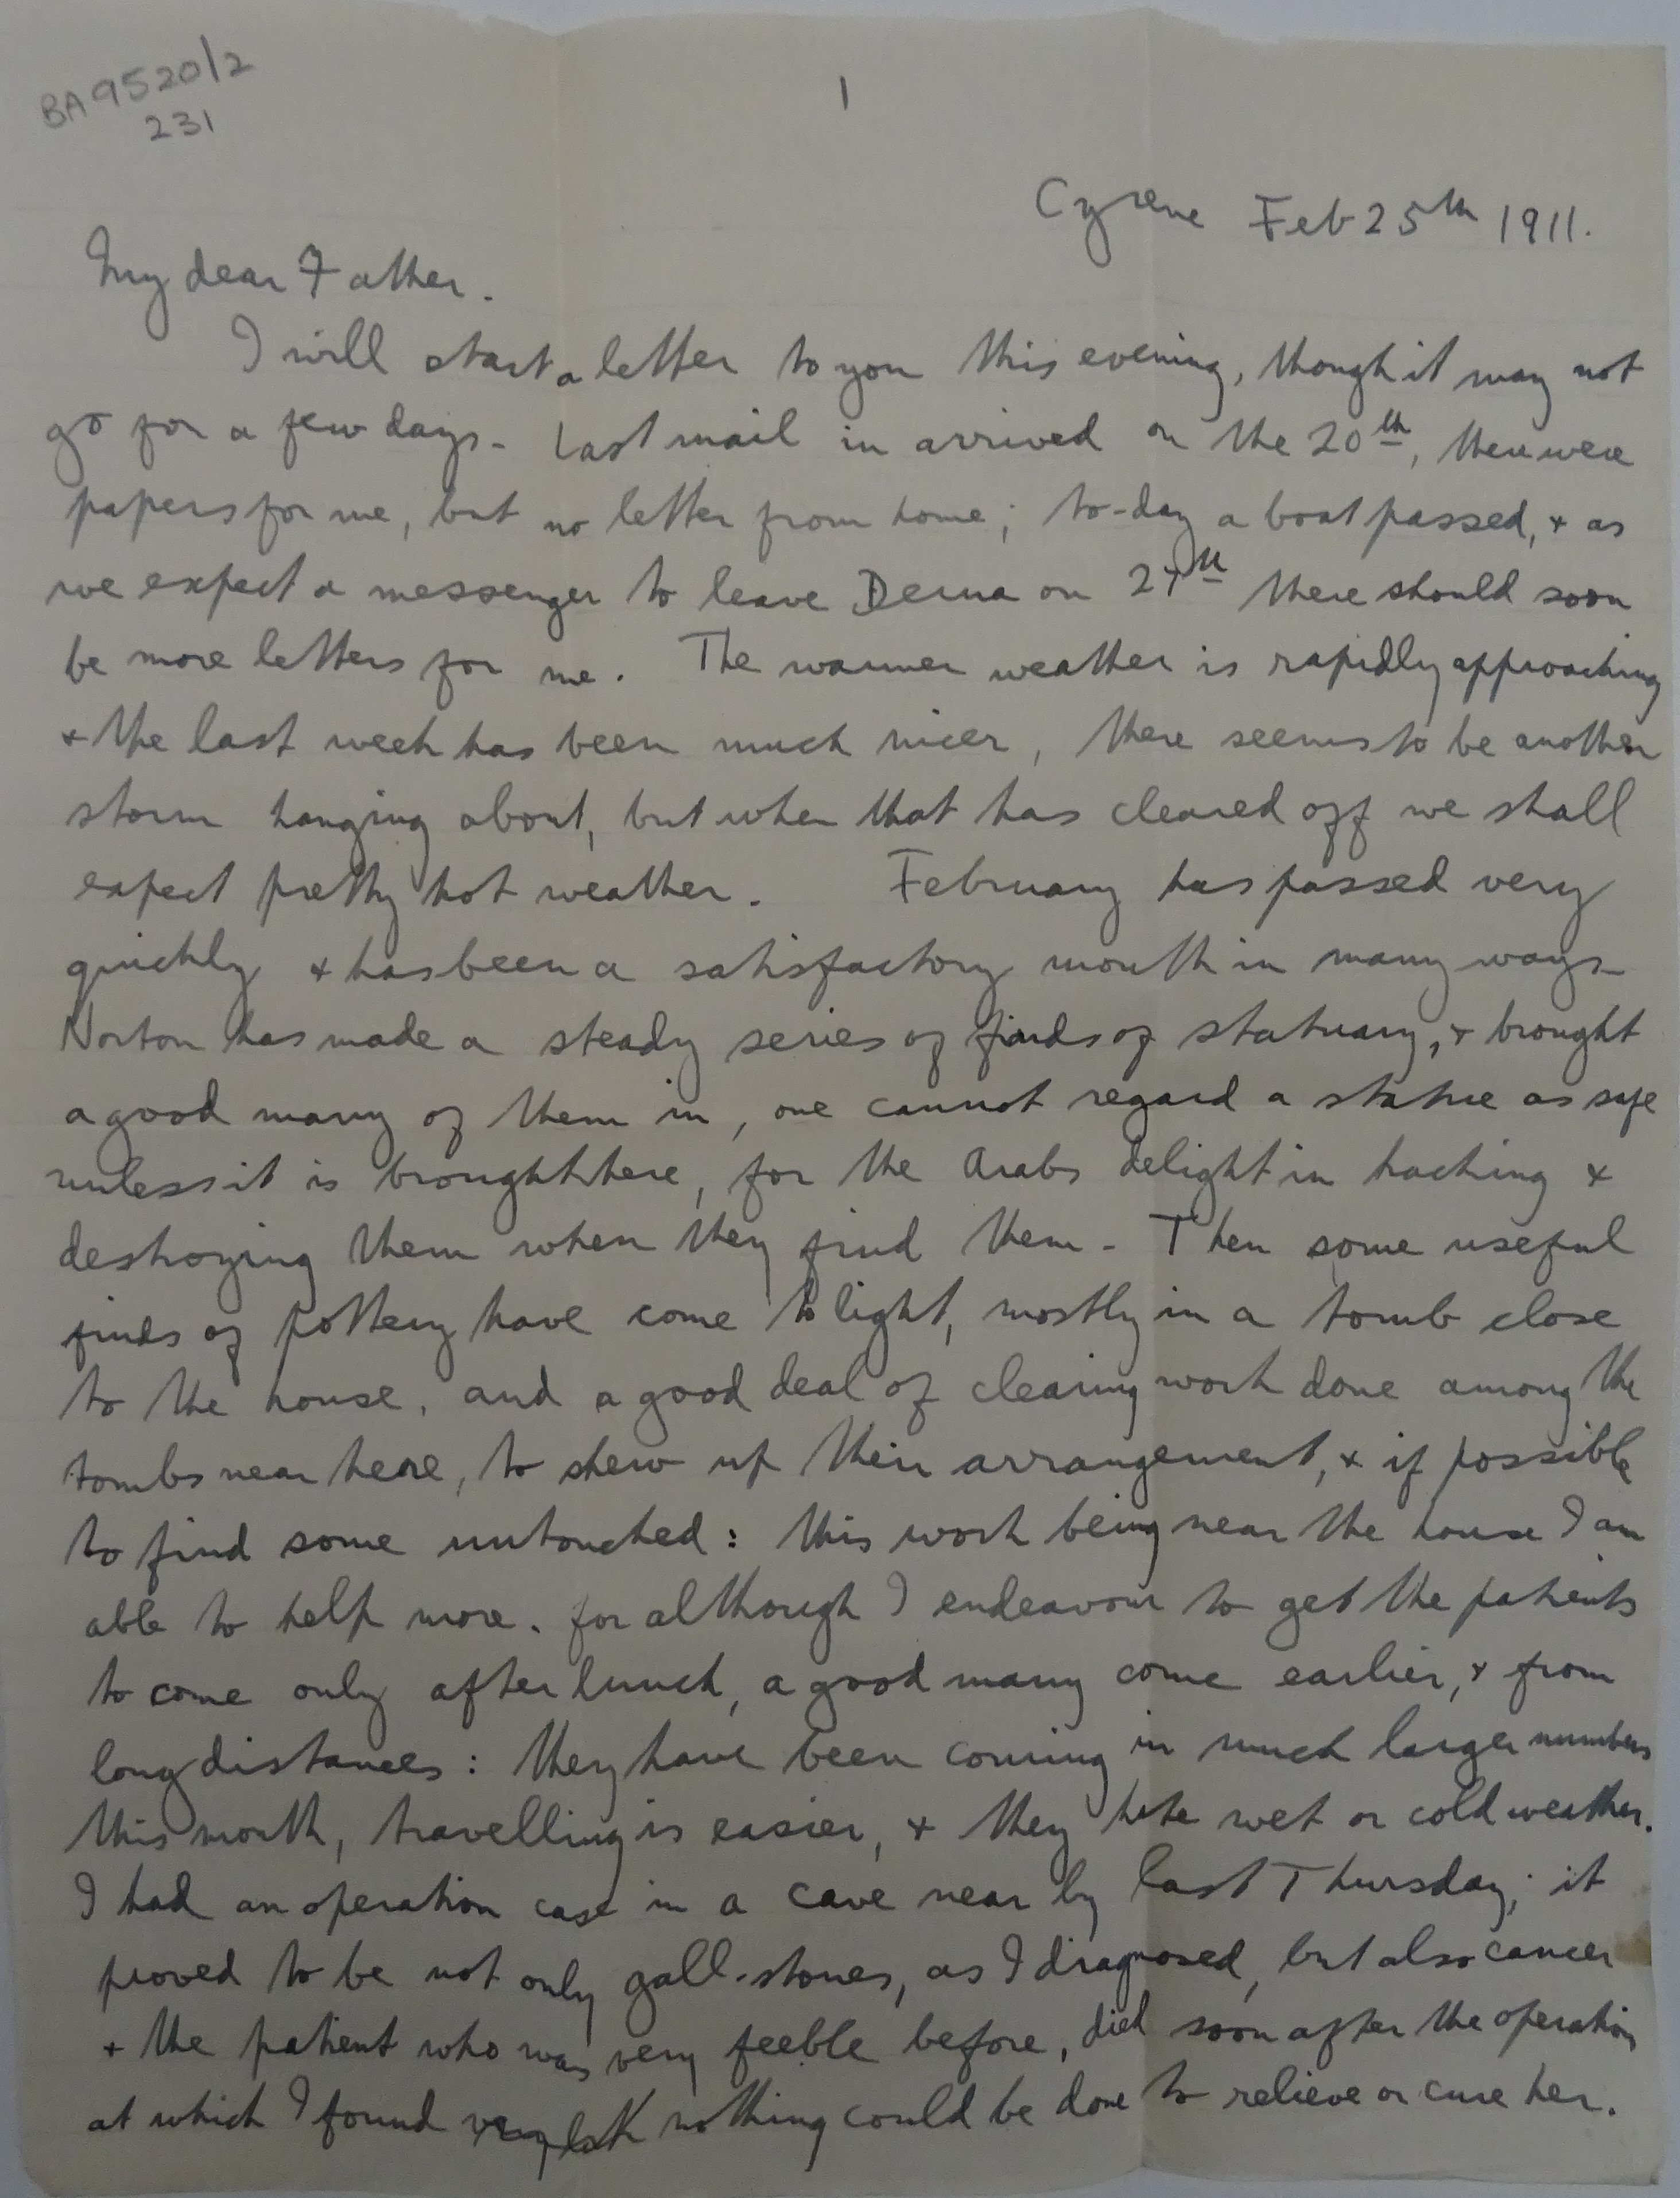 BA 9520/2
231
1
Cyrene Feb 25th 1911.
My dear Father.
I will start a letter to you this evening, though it may not
go for a few days - last mail in arrived on the 20th, there were
papers for me, but no letter from home; to-day a boat passed, + as
we expect a messenger to leave Derna on 27th there should soon
be more letters for me. The warmer weather is rapidly approaching
+ the last week has been much nicer, there seems to be another
storm hanging about, but when that has cleared off we shall
expect pretty hot weather. February has passed very
quickly + has been a satisfactory month in many ways -
Norton has made a steady series of finds of statuary, + brought
a good many of them in, one cannot regard a statue as safe
unless it is brought here, for the Arabs delight in hacking +
destroying them when they find them - Then some useful
finds of pottery have come to light, mostly in a tomb close
to the house, and a good deal of clearing work done among the
tombs near here, to shew up their arrangement, + if possible
to find some untouched: this work being near the house I am
able to help more. for although I endeavour to get the patients
to come only after lunch, a good many come earlier, + from
long distances: they have been coming in much larger numbers
this month, travelling is easier, + they hate wet or cold weather.
I had an operation case in a cave near by last Thursday; it
proved to be not only gall-stones, as I diagnosed, but also cancer
+ the patient who was very feeble before, died soon after the operation
at which I found nothing could be done to relieve or cure her.